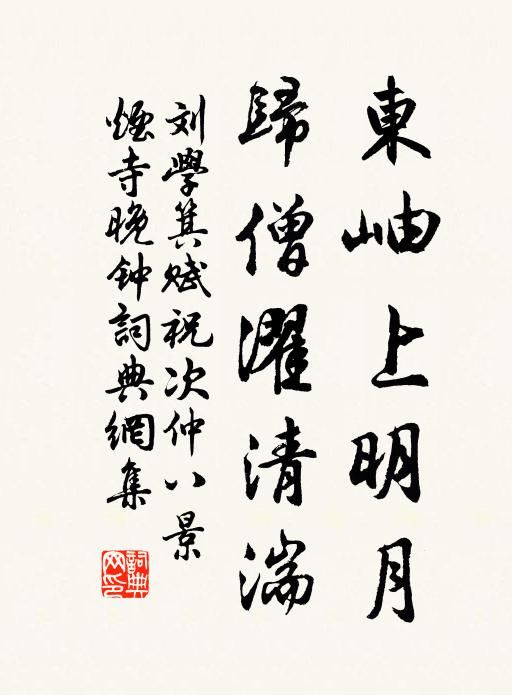 東岫上明月
歸僧濯清湍
刘學箕赋祝次仲八景
煙寺晚钟詞典網集
詞典網印